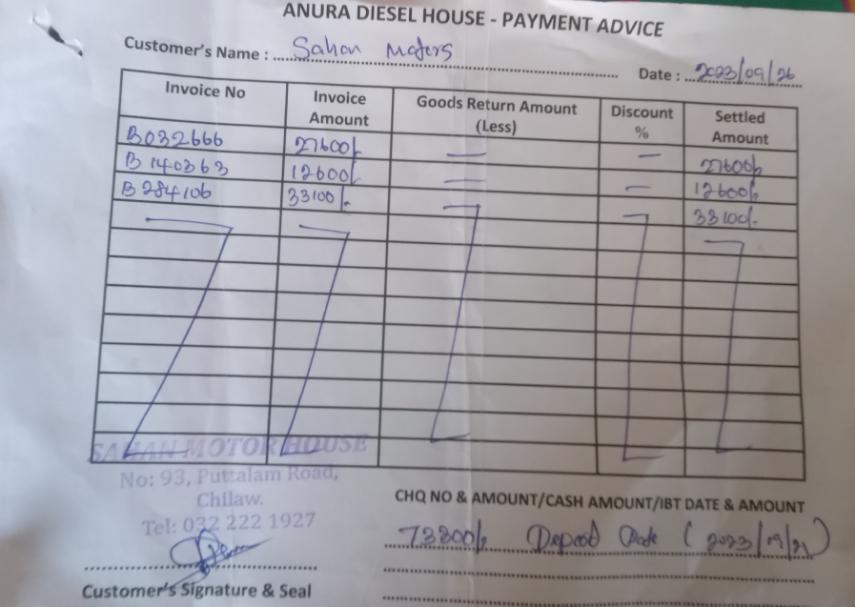 ANURA DIESEL HOUSE - PAYMENT ADVICE
Customer's Name : Sahan Motors
Date : 2023/09/26
Invoice No Invoice Amount Goods Return Amount (Less) Discount % Settled Amount
B032666 27600/- — — 27600/-
B 140363 12600/- — — 12600/-
B 284106 33100/- 33100/-
SAHAN MOTOR HOUSE
No: 93, Puttalam Road,
Chilaw.
Tel: 032 222 1927
Customer's Signature & Seal
CHQ NO & AMOUNT/CASH AMOUNT/IBT DATE & AMOUNT
73300/- Deposit Date (2023/09/21)